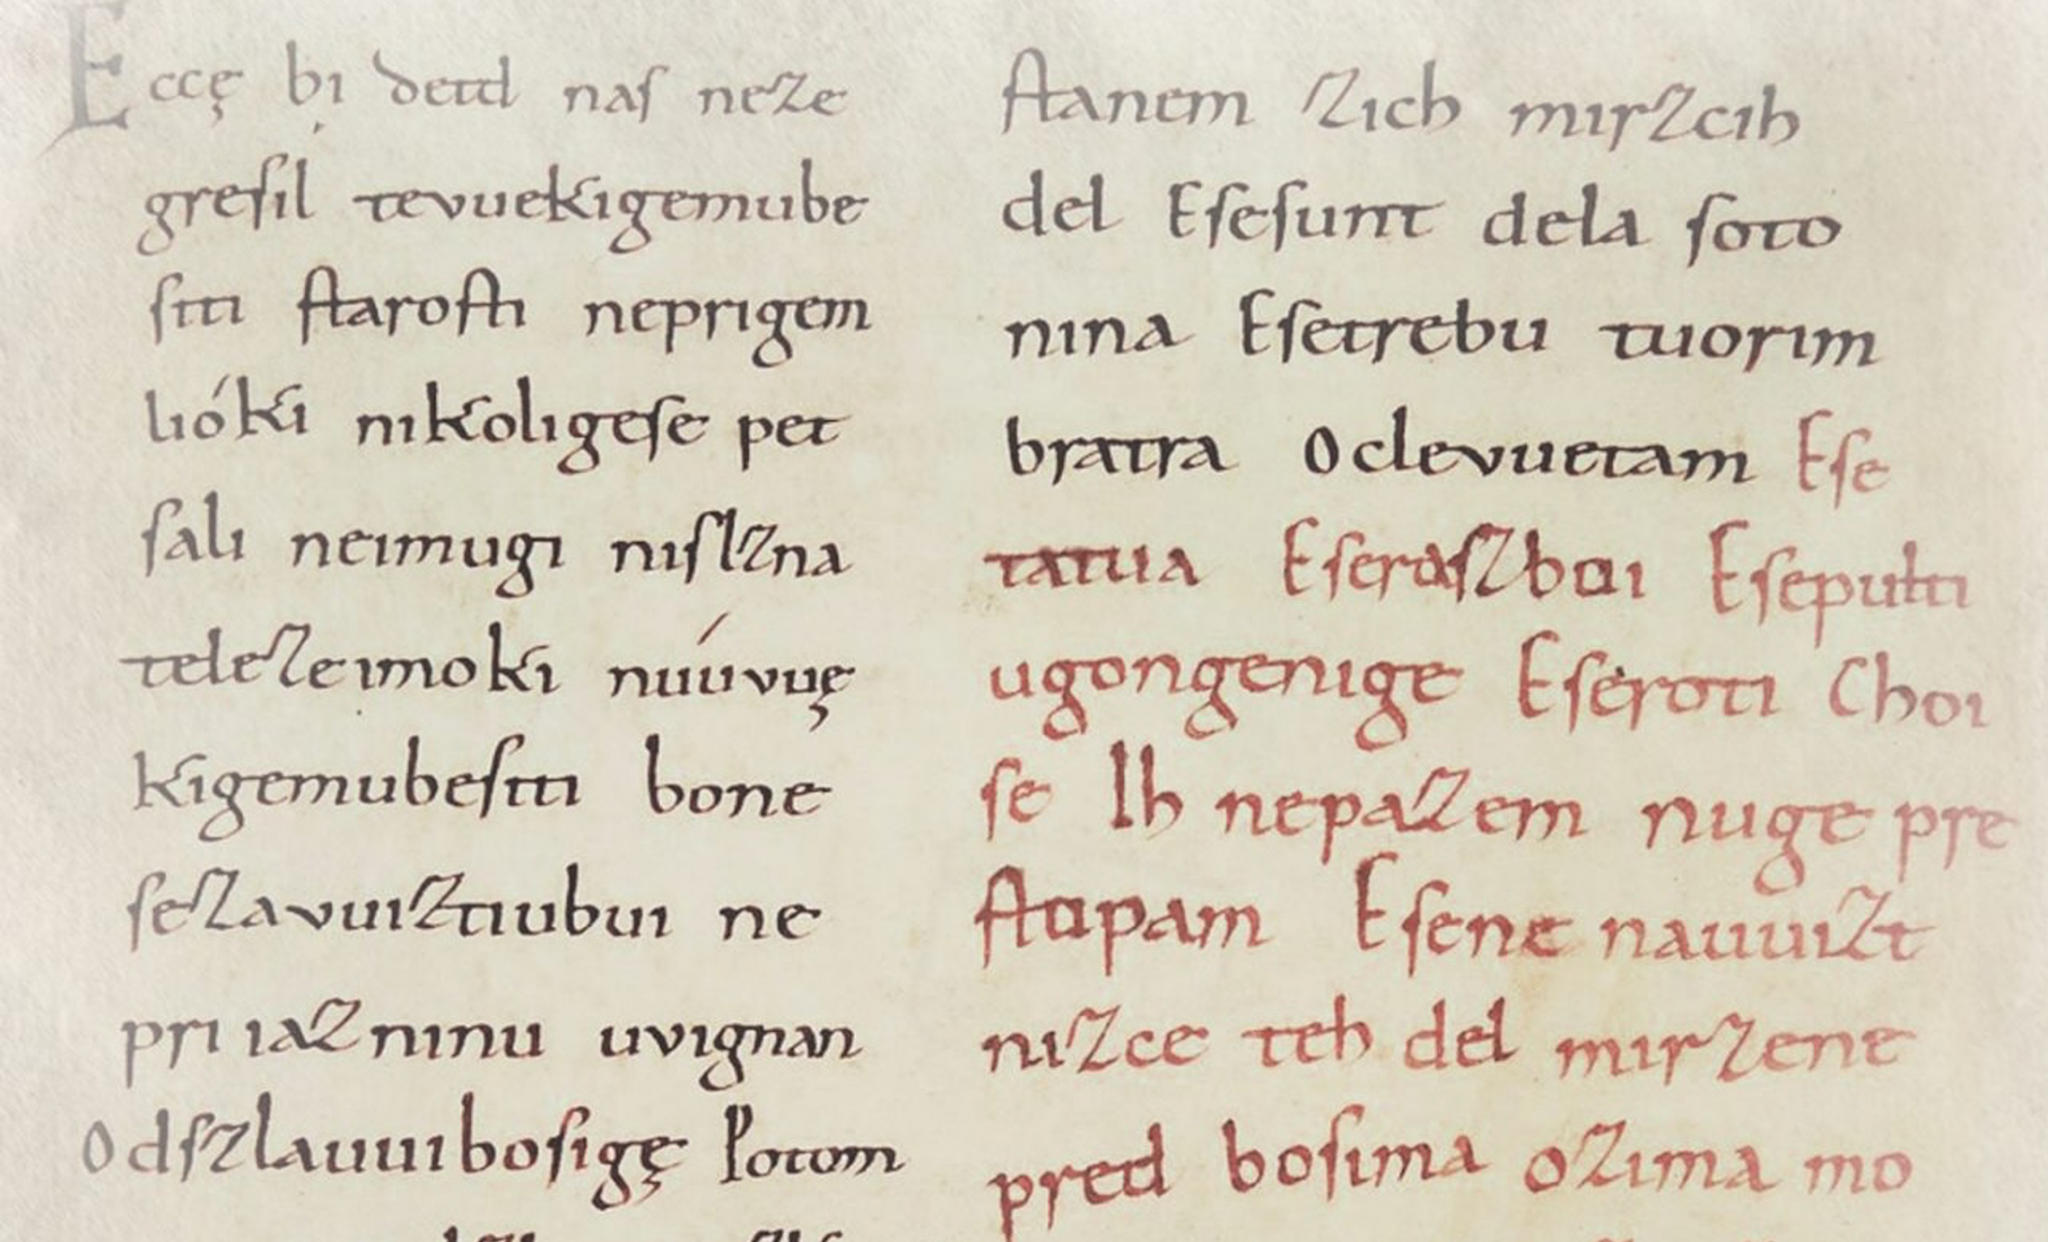 Eccę bi detd naſ neze
greſil tevuekigemube
ſiti ſtaroſti neprigem
lióki nikoligeſe pet
ſali neimugi niſlzna
telezeimoki nuúvuę
kigemubeſiti bone
ſezavuiztiubui ne
pri iazninu uvignan
Odſzlauuiboſigę Potom
ſtanem zich mirzcih
del Eſeſunt dela ſoto
nina Eſetrebu tuorim
bratra Oclevuetam Eſe
tatua Eſeraſzboi Eſepulti
ugongenige Eſeroti Choi
ſe Ih nepazem nuge pre
ſtopam Eſene nauuizt
nizce teh del mirzene
pred boſima ozima mo